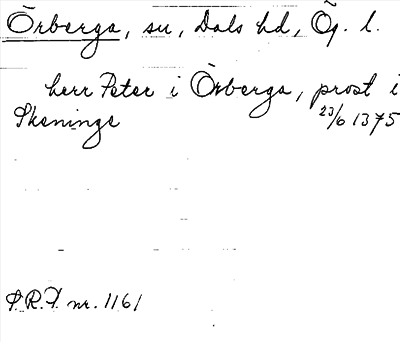 Örberga, sn, Dals hd, Ög. l.
herr Peter i Örberga, prost i
Skeninge
23/6 1375
S.R.P. nr. 1161